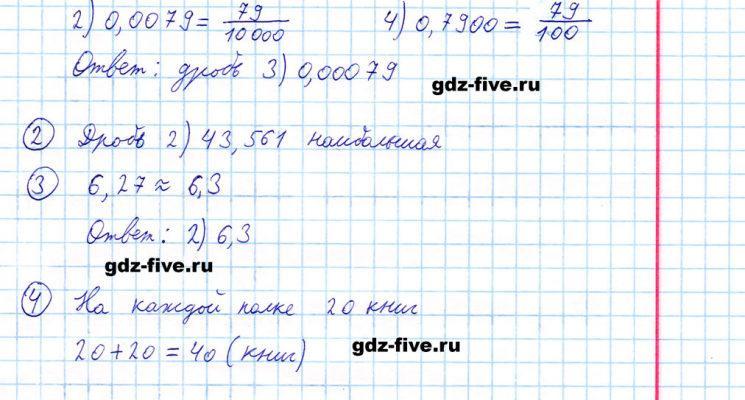 2) 0,0079 = 79/10000 4) 0,7900 = 79/100
Ответ: дробь 3) 0,00079
gdz-five.ru
2 Дробь 2) 43,561 наибольшая
3 6,27 ≈ 6,3
Ответ: 2) 6,3
gdz-five.ru
4 На каждой полке 20 книг
20 + 20 = 40 (книг)
gdz-five.ru